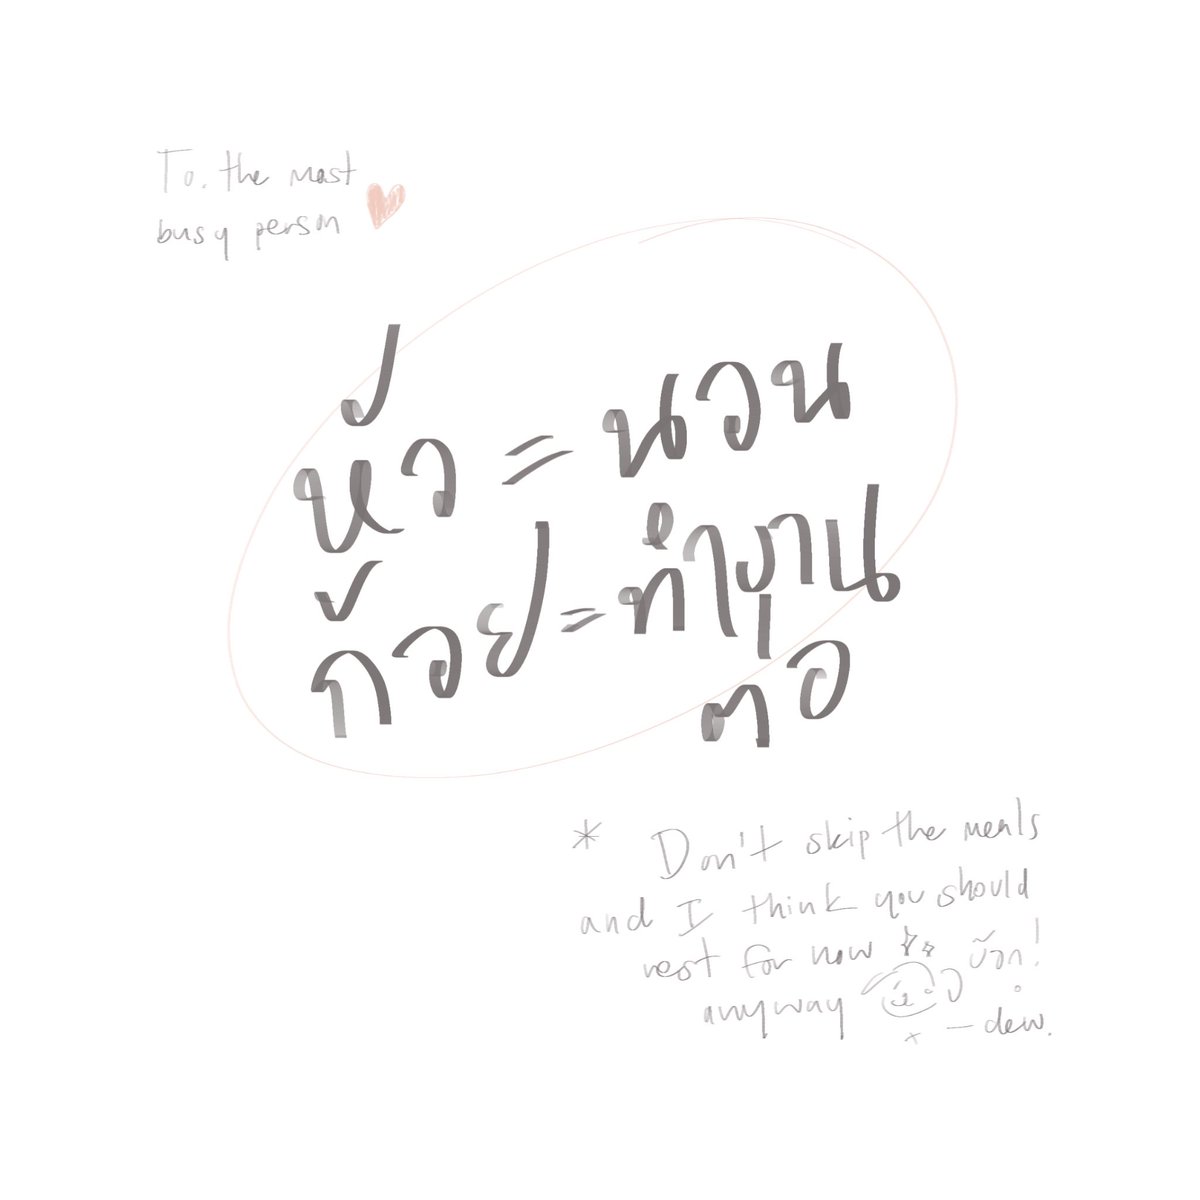 To. the most
busy person
หัว = นวน
ก้วย = ทำงาน
ต่อ
* Don't skip the meals
and I think you should
rest for now
anyway
— dew.